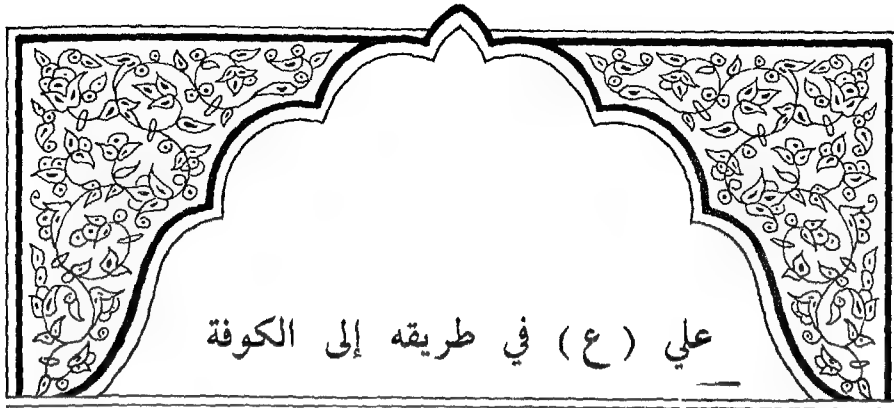 علي (ع) في طريقه إلى الكوفة